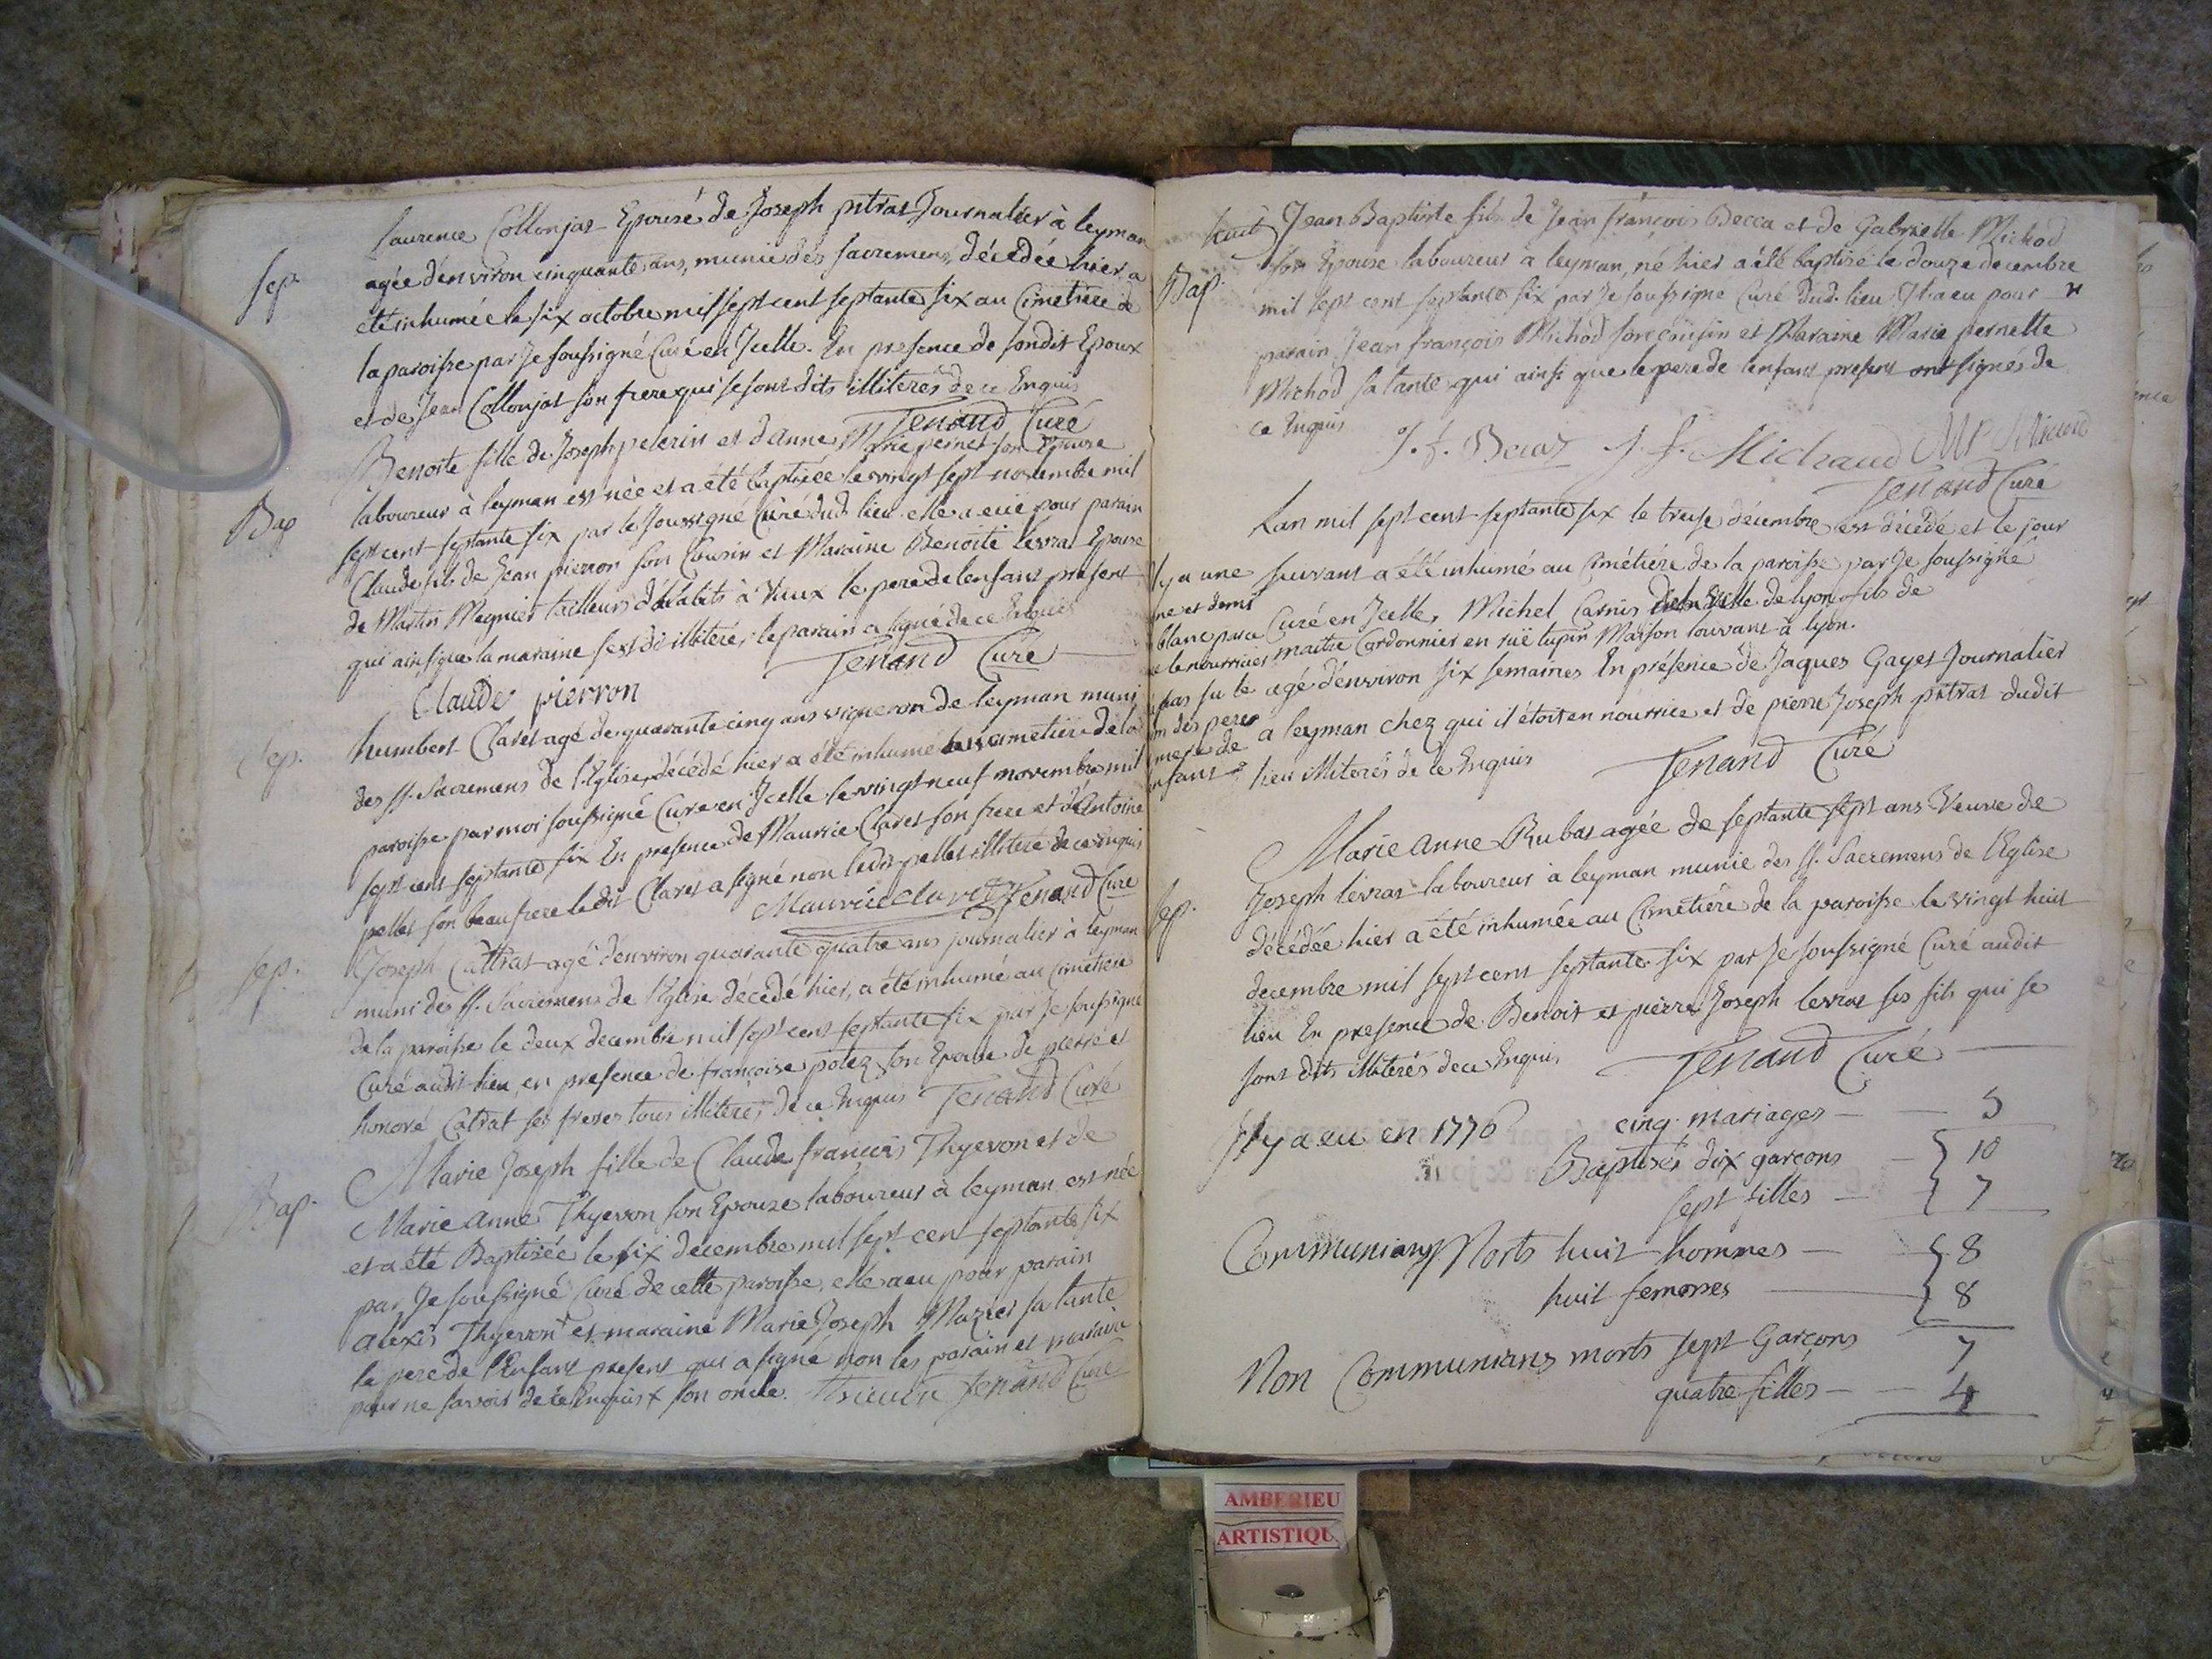 Laurence Collonjat Epouse de Joseph pitrat Journalier à leyman
Sep.
agée d'environ cinquante ans, munie des sacremens, décédée hier a
été inhumée le six octobre mil sept cent septante six au Cimetiere de
la paroisse par Je soussigné Curé en Icelle. En presence de sondit Epoux
et de Jean Collonjat son frere qui se sont dits illiterés de ce Enquis
Tenand Curé
Benoite fille de Joseph pelerin et d'anne Marie pernet son Epouse
Bap
laboureur à leyman est née et a été baptisée le vingt sept novembre mil
sept cent septante six par le soussigné Curé dud. lieu elle a eue pour parain
Claude fils de Jean pierron son Cousin et Maraine Benoite levrat Epouse
de Martin Megnier tailleurs d'habits à Vaux le pere de l'enfant present
qui ainsi que la maraine s'est dit illiteré, le parain a signé de ce Enquis
Tenand Curé
Claude pierron
Sep.
humbert Claret agé de quarante cinq ans vigneron de leyman muni
des SS. Sacremens de l'Eglise, décédé hier a été inhumé au cimetiere de la
paroisse par moi soussigné Curé en Icelle le vingt neuf novembre mil
sept cent septante six En presence de Maurice Claret son frere et d'Antoine
pellet son beaufrere ledit Claret a signé non ledit pellet illiteré de ce enquis
Maurice claret Tenand Curé
Sep.
Joseph Cattrat agé d'environ quarante quatre ans journalier à leyman
muni des SS. Sacremens de l'Eglise décédé hier, a été inhumé au Cimétiere
de la paroisse le deux decembre mil sept cent septante six par Je soussigné
Curé audit lieu en presence de françoise potez son Epouse de pierre et
honoré Catrat ses freres tous illiterés de ce Enquis Tenand Curé
Marie Joseph fille de Claude françois Thyevon et de
Bap.
Marie Anne Thyevon son Epouze laboureur à leyman est née
et a été Baptisée le six decembre mil sept cent septante six
par Je soussigné Curé de cette paroisse, elle a eu pour parain
alexis Thyevon + et maraine Marie Joseph Mazier sa tante
le pere de l'Enfant present qui a signé non les parain et maraine
pour ne savoir de ce Enquis + son oncle. Tenand Curé
Jean Baptiste fils de Jean françois Becca et de Gabrielle Michod
Bap.
son Epouse laboureur à leyman, né hier a été baptisé le douze decembre
mil sept cent septante six par Je soussigné Curé dud. lieu Il a eu pour
parain Jean françois Michod son cousin et Maraine Marie pernette
Michod sa tante qui ainsi que le pere de l'enfant present ont signés de
ce Enquis
J. f. Michaud
Tenand Curé
Lan mil sept cent septante six le treise décembre est décédé et le jour
suivant a été inhumé au cimétiére de la paroisse par Je soussigné
Curé en Icelle, Michel Carnis de la Ville de lyon fils de
maitre Cordonnier en ruë tupin Maison louvant à lyon.
agé d'environ six semaines En présence de Jaques Gayet Journalier
à leyman chez qui il étoit en nourrice et de pierre Joseph pitrat dudit
lieu illiterés de ce Enquis
Tenand Curé
Il y a une
ligne et demi
blanc parce
que le nourricier
pas su le
nom des pere
mere de
enfant
Marie Anne Rubat agée de septante sept ans Veuve de
Joseph levrat laboureur à leyman munie des SS. Sacremens de l'Eglise
Sep.
décédée hier a été inhumée au Cimetiére de la paroisse le vingt huit
decembre mil sept cent septante six par Je soussigné Curé audit
lieu En presence de Benoit et pierre Joseph levrat ses fils qui se
sont dits illiterés de ce Enquis
Tenand Curé
Il y a eu en 1776
cinq mariages — 5
Baptisés dix garçons — 10
sept filles — 7
Communians Morts huit hommes — 8
huit femmes — 8
Non Communians morts sept Garçons 7
quatre filles — 4
AMBERIEU
ARTISTIQU